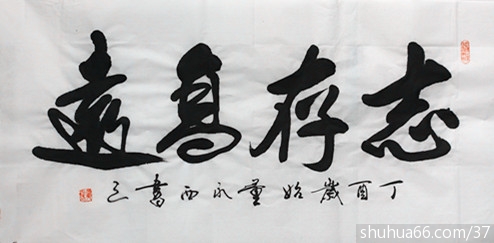 志存高遠
丁酉歲始董永西書
shuhua66.com/37